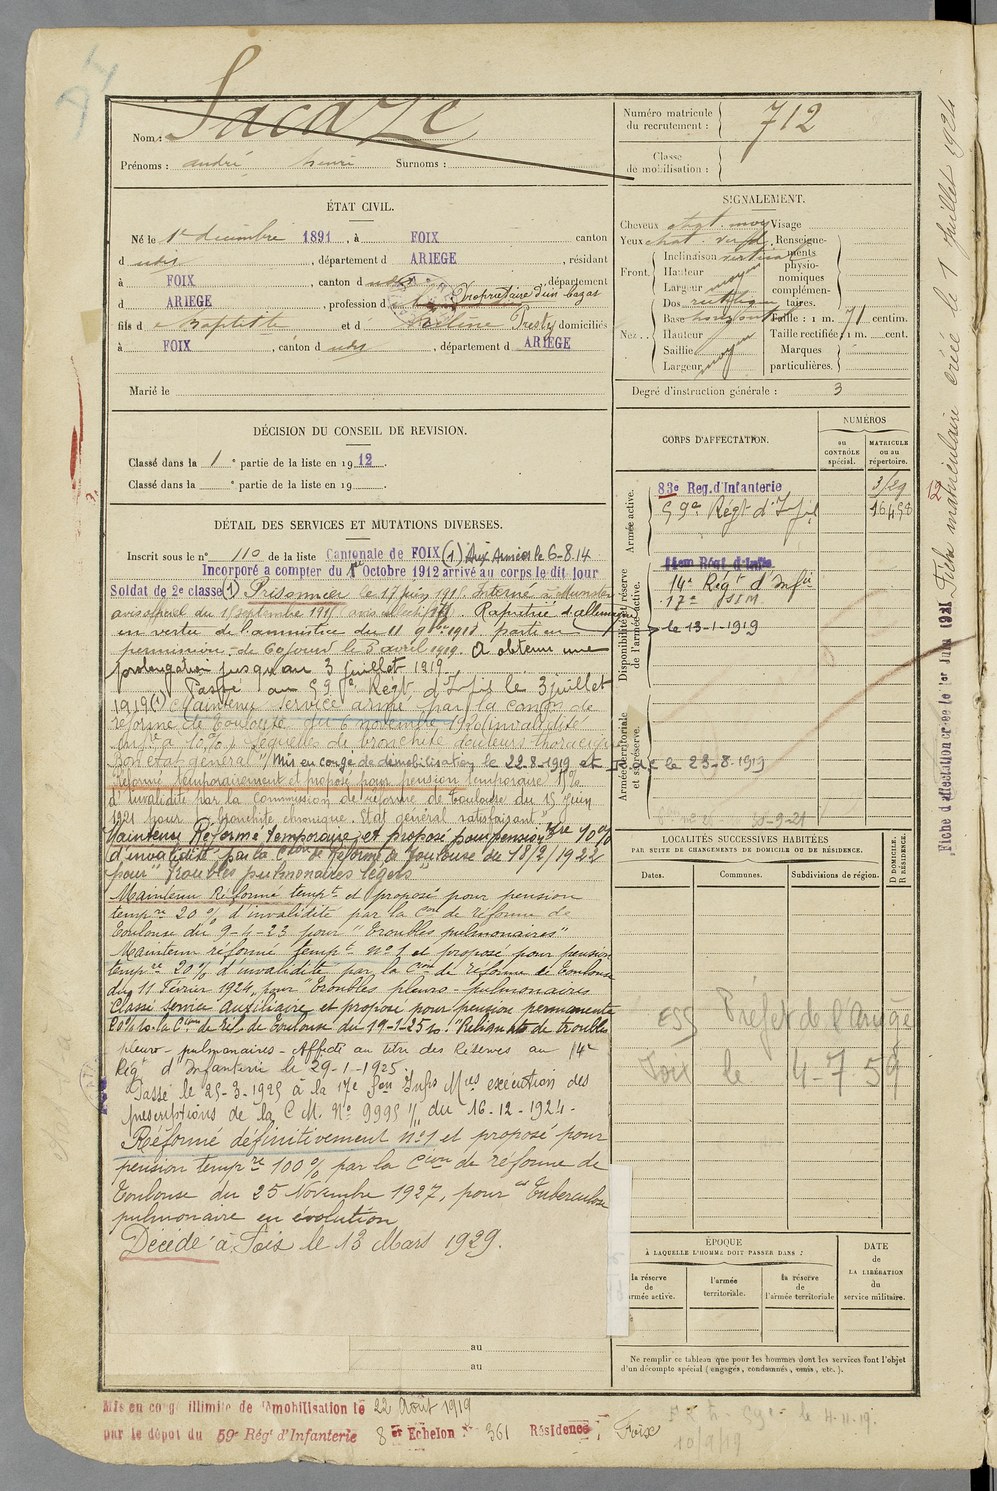 Nom : Sacaze
Prénoms : andré henri Surnoms :
Numéro matricule
du recrutement : 712
Classe
de mobilisation :
ÉTAT CIVIL.
Né le 1er décembre 1891, à FOIX canton
d udit, département d ARIEGE, résidant
à FOIX, canton d udit, département
d ARIEGE, profession d Propriétaire d'un bazar
fils d e Baptiste et d Presty domiciliés
à FOIX, canton d udit, département d ARIEGE
Marié le
SIGNALEMENT.
Cheveux chat. moy Visage
Yeux chat. verd. Renseigne-
ments
physio-
nomiques
complémen-
taires.
Front. Inclinaison vertical
Hauteur
Largeur moyen
Nez.. Dos rectiligne
Base horizontal
Hauteur
Saillie
Largeur moyen
Taille : 1 m. 71 centim.
Taille rectifiée : 1 m. cent.
Marques
particulières.
Degré d'instruction générale : 3
DÉCISION DU CONSEIL DE REVISION.
Classé dans la 1e partie de la liste en 1912.
Classé dans la e partie de la liste en 19 .
DÉTAIL DES SERVICES ET MUTATIONS DIVERSES.
Inscrit sous le n° 110 de la liste Cantonale de FOIX (1) Aux Armées le 6-8.14
Incorporé a compter du 1er Octobre 1912 arrivé au corps le dit jour
Soldat de 2e classe (1) Prisonnier le 17 juin 1915 Interné à Munster
avis officiel du 1 septembre 1915 Rapatrié d'allemagne
en vertu de l'armistice du 11 9bre 1918 parti en
permission de 60 jours le 3 avril 1919. A obtenu une
prolongation jusqu'au 3 juillet 1919
Passé au 59e Régt d'Infie le 3 juillet
1919 (1) Maintenu service armé par la comon de
réforme de Toulouse du 6 novembre 1920 invalidité
infre à 10% séquelles de bronchite douleurs thoraciques
Bon état général Mis en congé de démobilisation le 22.8.1919 et R.d.C le 23-8-1919
Réformé temporairement et proposé pour pension temporaire 15%
d'invalidité par la Commission de réforme de Toulouse du 15 juin
1921 pour bronchite chronique. Etat général satisfaisant
Maintenu Réformé temporaire et proposé pour pension tre 10%
d'invalidité par la Cion de Réforme de Toulouse du 18/2/1922
pour "Troubles pulmonaires légers"
Maintenu Réformé tempt et proposé pour pension
tempre 20% d'invalidité par la Con de réforme de
Toulouse du 9-4-23 pour "troubles pulmonaires"
Maintenu réformé tempt n°1 et proposé pour pension
tempre 20% d'invalidité par la Cion de réforme de Toulouse
du 11 Février 1924, pour "troubles pleuro-pulmonaires
Classé service auxiliaire et proposé pour pension permanente
20% par la Cion de réf. de Toulouse du 19-1-25 pr "Reliquats de troubles
pleuro-pulmonaires - Affecté au titre des Réserves au 14e
Régt d'Infanterie le 29-1-1925.
Passé le 25-3-1925 à la 17e Son Infrs Mres exécution des
prescriptions de la C.M. N° 9995 du 16-12-1924 -
Réformé définitivement n°1 et proposé pour
pension tempre 100% par la Cion de réforme de
Toulouse du 25 Novembre 1927, pour "Tuberculose
pulmonaire en évolution
Décédé à Foix le 13 Mars 1929.
au
au
CORPS D'AFFECTATION.
NUMÉROS
au
CONTRÔLE
spécial.
MATRICULE
ou au
répertoire.
Armée active.
83e Reg. d'Infanterie
59e Régt d'Infie 16458
Disponibilité et réserve
de l'armée active.
14e Régt d'Infie
17e SIM
le 13-1-1919
Armée territoriale
et sa réserve.
30-9-21
LOCALITÉS SUCCESSIVES HABITÉES
PAR SUITE DE CHANGEMENTS DE DOMICILE OU DE RÉSIDENCE.
Dates.
Communes.
Subdivisions de région.
D DOMICILE.
R RÉSIDENCE.
ESS Préfet de l'Ariège
Foix le 4-7-59
ÉPOQUE
À LAQUELLE L'HOMME DOIT PASSER DANS :
la réserve
de
l'armée active.
l'armée
territoriale.
la réserve
de
l'armée territoriale
DATE
de
LA LIBÉRATION
du
service militaire.
Ne remplir ce tableau que pour les hommes dont les services font l'objet
d'un décompte spécial (engagés, condamnés, omis, etc.).
Mis en congé illimité de démobilisation le 22 Août 1919
par le dépot du 59e Régt d'Infanterie 8e Echelon N° 361 Résidence, Foix
10/9/19
Fiche matriculaire créée le 1 Juillet 1924
Fiche d'affectation créée le 1er Juin 1921